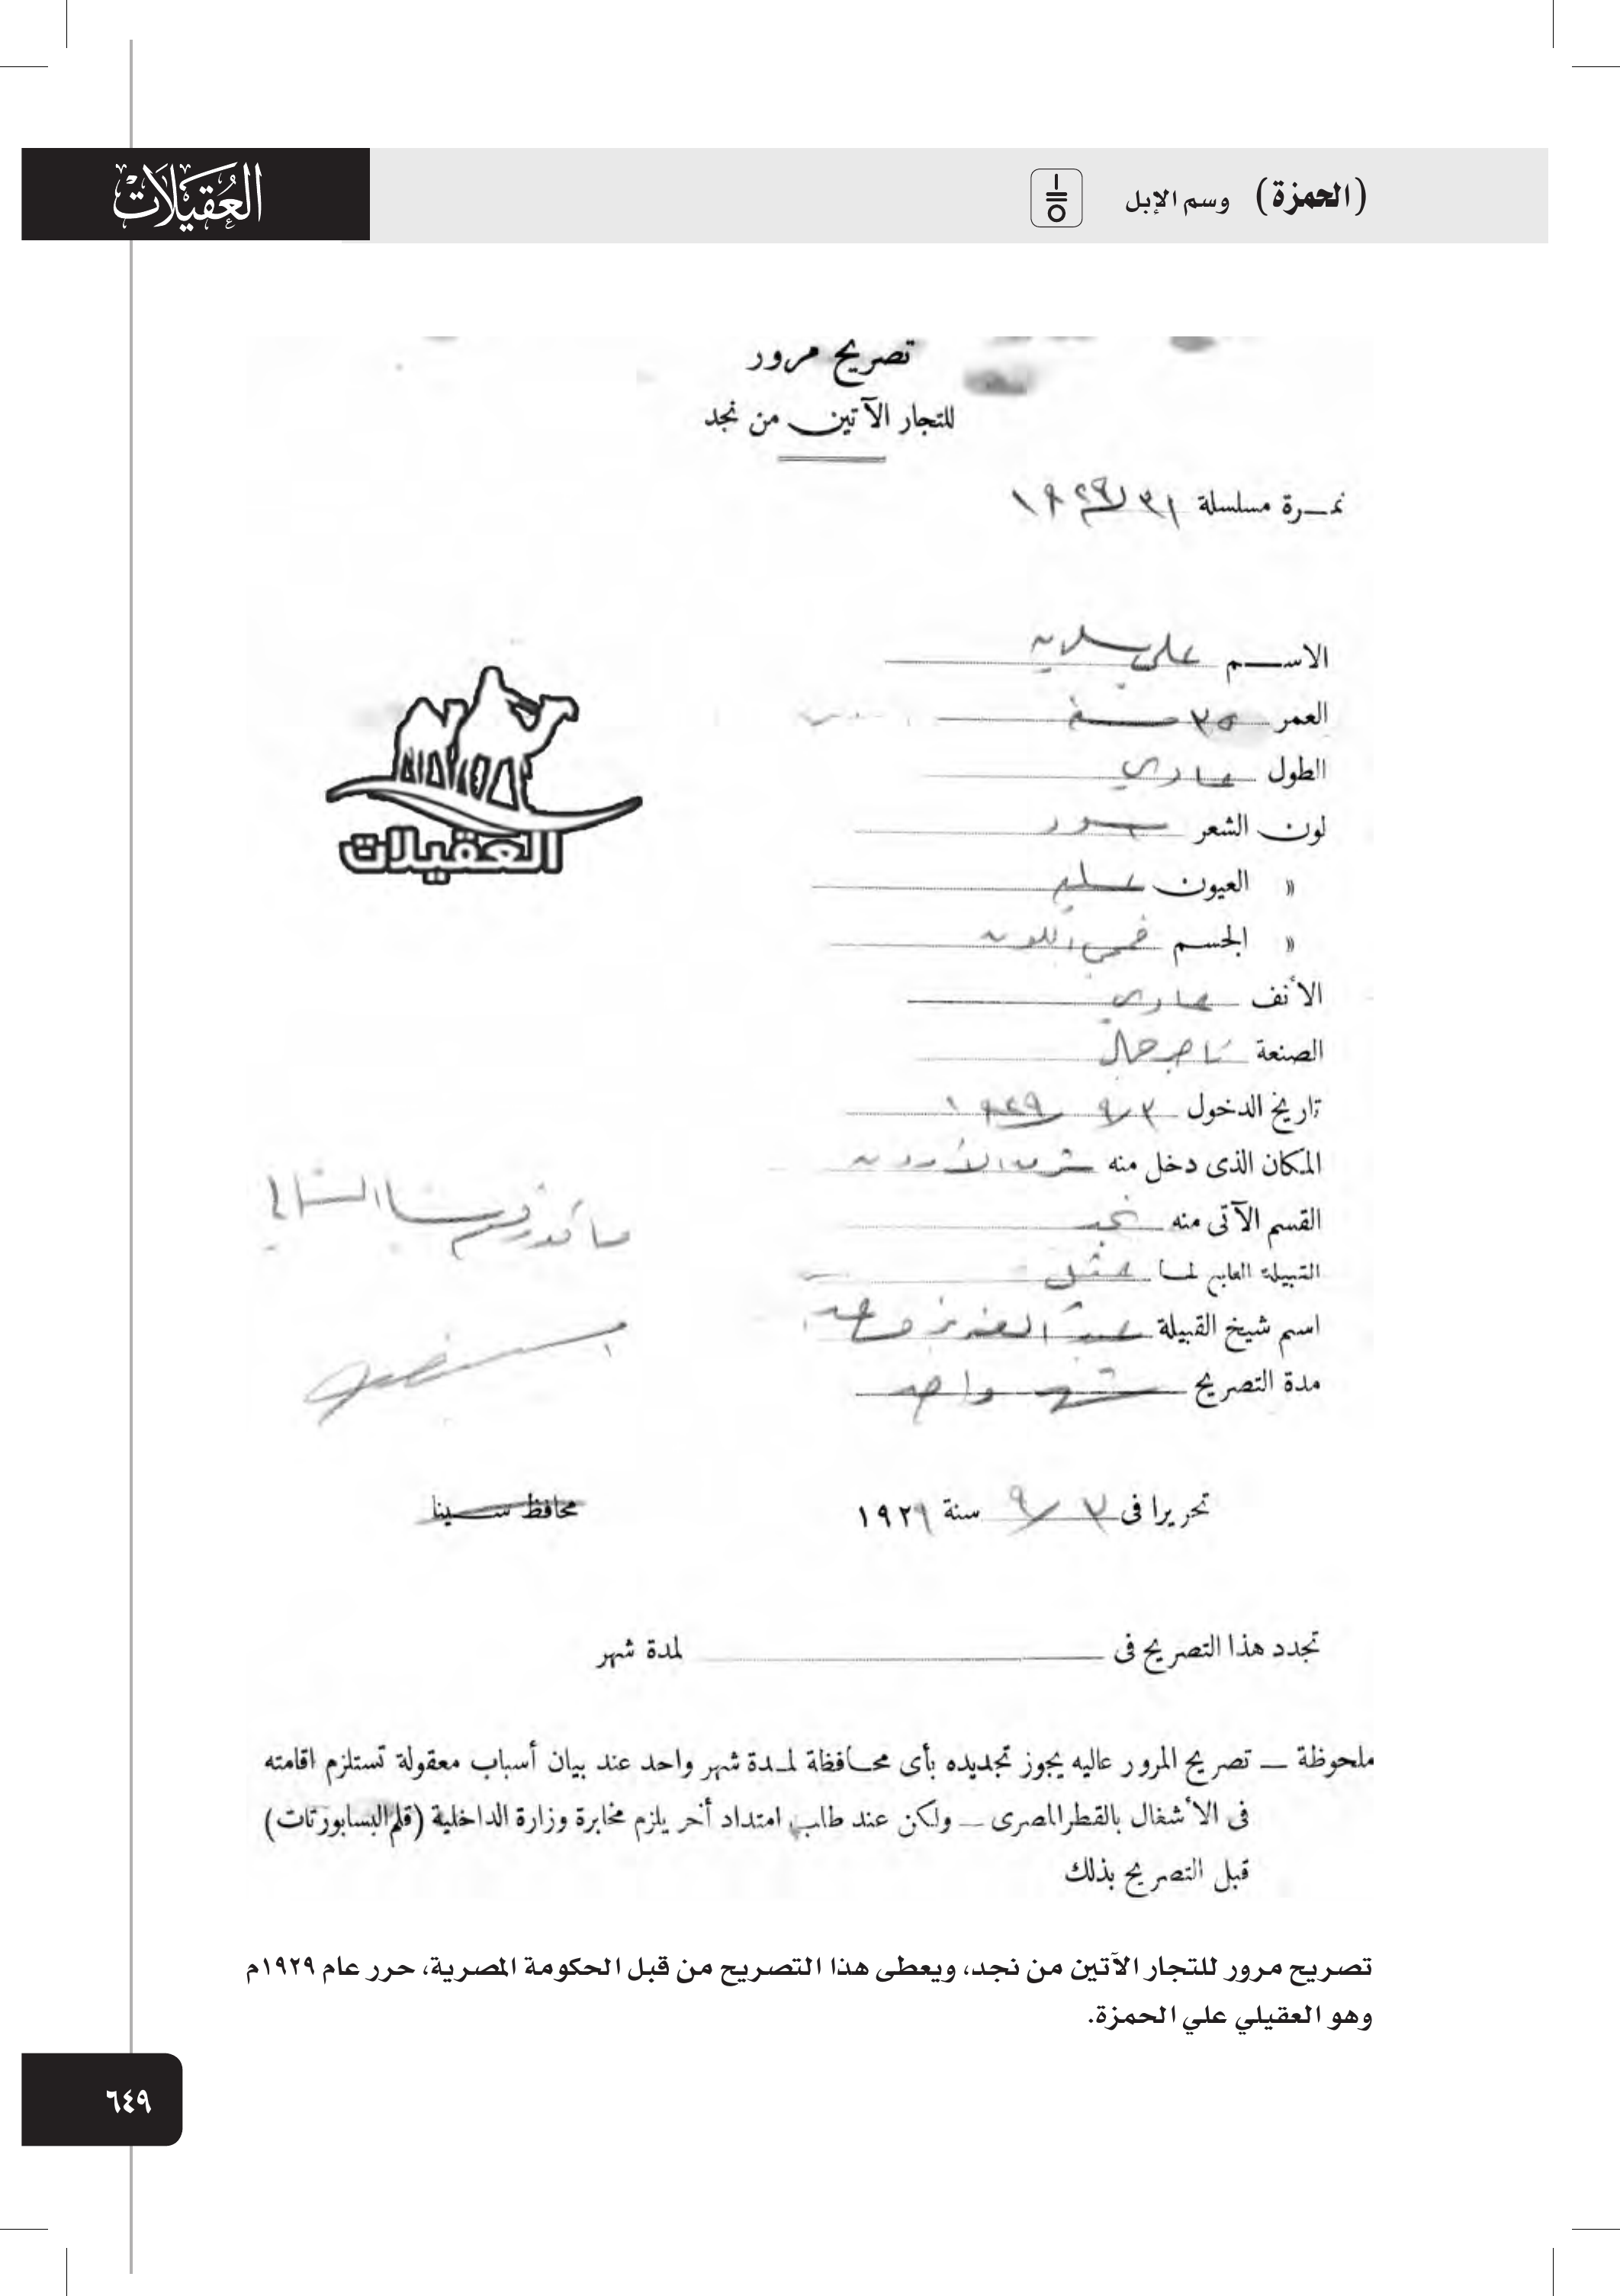 (الحمزة) وسم الإبل
العقيلات
تصريح مرور
للتجار الآتين من نجد
نمرة مسلسلة ٣١ / ١٩٢٩
الاسم علي سلامه
العمر ٣٥ سنة
الطول عادي
لون الشعر اسود
» العيون عسلي
» الجسم قمحي اللون
الأنف عادي
الصنعة تاجر جمال
تاريخ الدخول ٣ / ٩ / ١٩٢٩
المكان الذى دخل منه شرق الأردن
القسم الآتى منه نجد
القبيلة التابع لها
اسم شيخ القبيلة عبد العزيز
مدة التصريح شهر واحد
العقيلات
مأمور قسم سينا الشمالي
تحريرا فى ٣ / ٩ سنة ١٩٢٩
محافظ سينا
تجدد هذا التصريح فى لمدة شهر
ملحوظة — تصريح المرور عاليه يجوز تجديده بأى محافظة لمدة شهر واحد عند بيان أسباب معقولة تستلزم اقامته
فى الأشغال بالقطر المصرى — ولكن عند طلب امتداد أخر يلزم مخابرة وزارة الداخلية (قلم البسابورتات)
قبل التصريح بذلك
تصريح مرور للتجار الآتين من نجد، ويعطى هذا التصريح من قبل الحكومة المصرية، حرر عام ١٩٢٩م
وهو العقيلي علي الحمزة.
٦٤٩